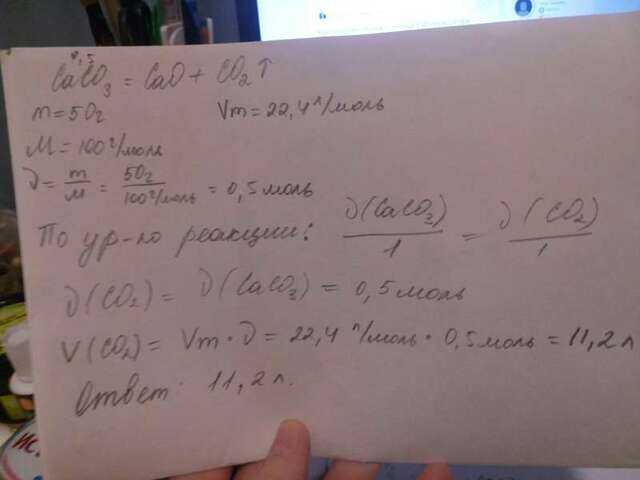 0,5
CaCO₃ = CaO + CO₂↑
m = 50г Vm = 22,4 л/моль
M = 100 г/моль
ν = m/M = 50г/100 г/моль = 0,5 моль
По ур-ю реакции: ν(CaCO₃)/1 = ν(CO₂)/1
ν(CO₂) = ν(CaCO₃) = 0,5 моль
V(CO₂) = Vm · ν = 22,4 л/моль · 0,5 моль = 11,2 л
Ответ: 11,2 л.